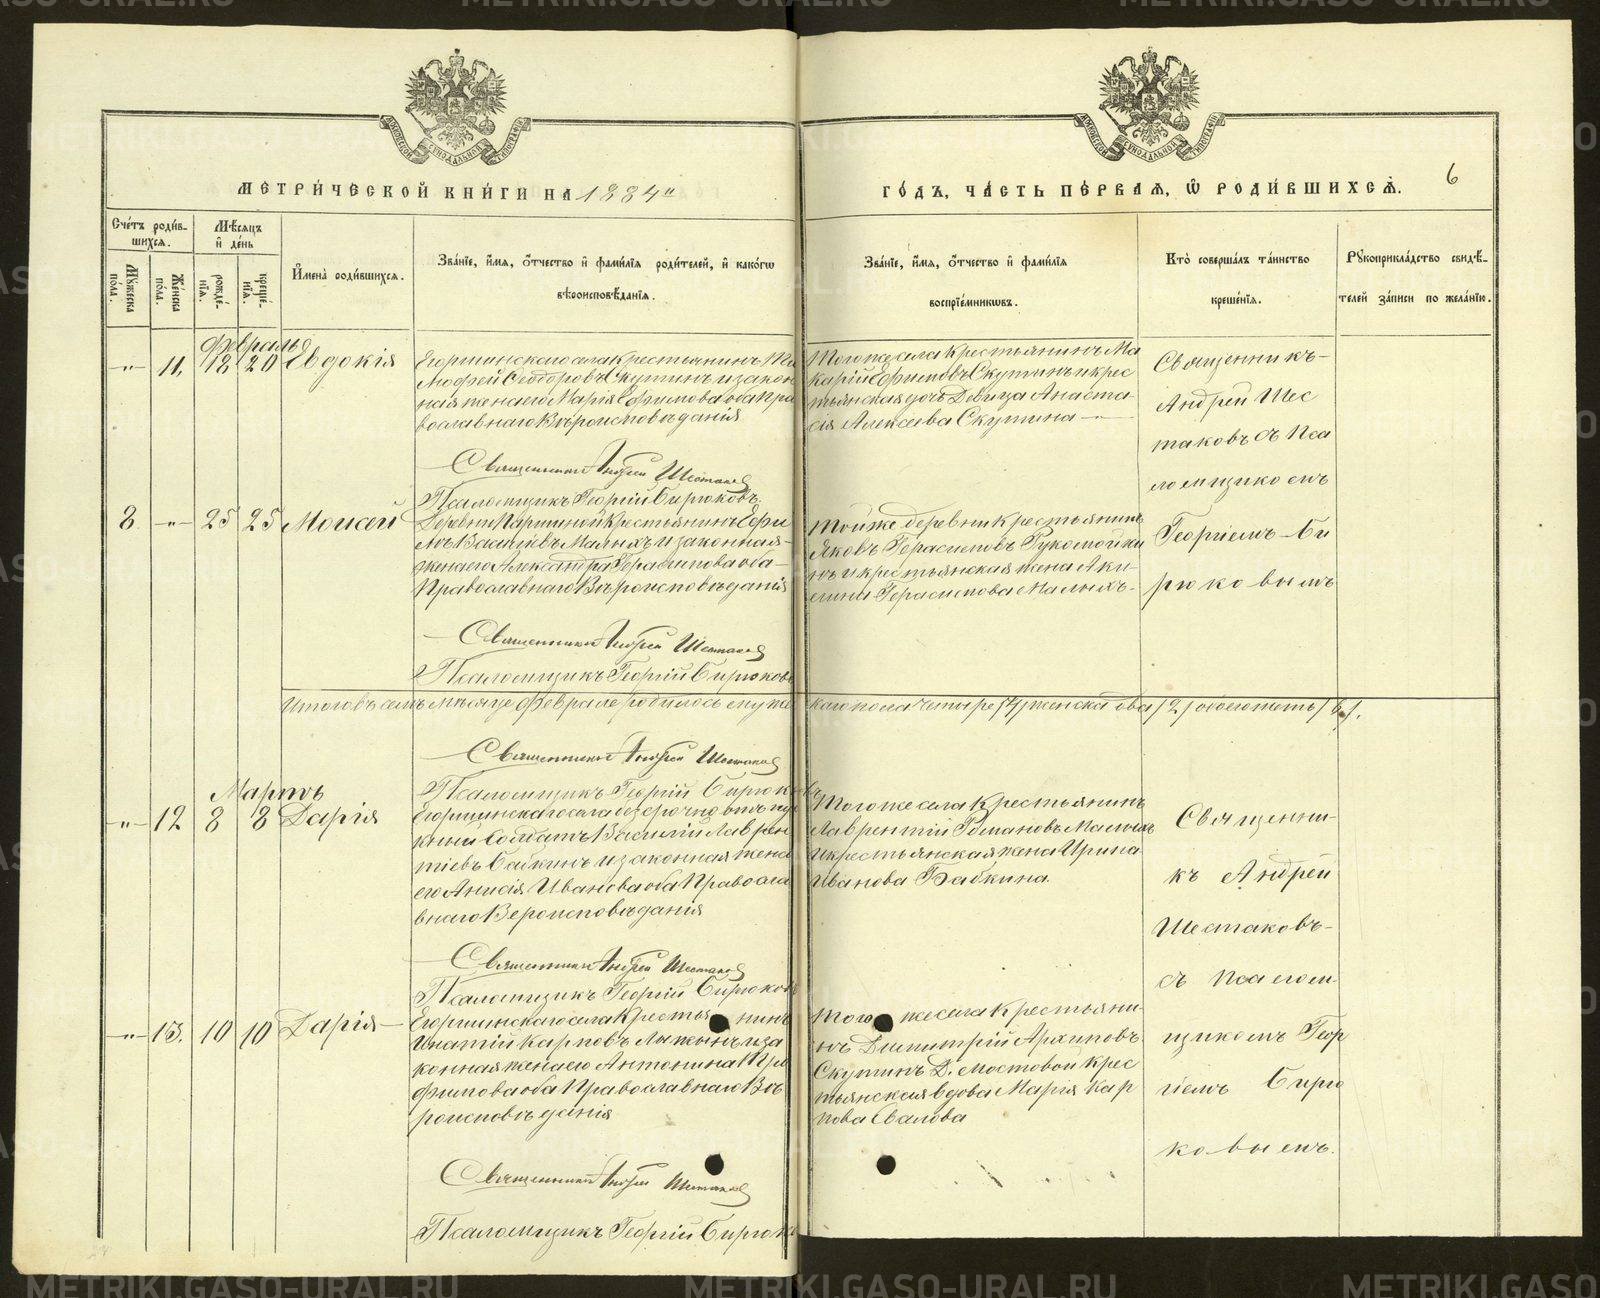 МЕТРИ́ЧЕСКОЙ КНИ́ГИ НА 1884й
ГО́ДЪ, ЧА́СТЬ ПЕ́РВАЯ, Ѿ РОДИ́ВШИХСѦ.
6
Сче́тъ роди́в-
шихся.
Мѣ́сяцъ
и҆ де́нь
Мꙋ́жеска
по́ла.
Же́нска
по́ла.
рожде́-
нїѧ.
креще́-
нїѧ.
И҆мена̀ роди́вшихся.
Зва́нїе, и҆́мя, ѻ҆́тчество и҆ фами́лїя роди́телей, и҆ како́гѡ
вѣроисповѣ́данїя.
Зва́нїе, и҆́мя, ѻ҆́тчество и҆ фами́лїя
воспрїе́мникѡвъ.
Кто̀ соверша́лъ та́инство
креще́нїя.
Рꙋкоприкла́дство свидѣ́-
телей за́писи по жела́нїю.
Февраль
-"- 11. 18 20 Евдокія
Егоршинскаго села Крестьянинъ Ти
мофей Ѳеодоровъ Скутинъ и закон
ная жена его Марія Ефимова оба Пра
вославнаго Вѣроисповѣданія
Священникъ Андрей Шестаковъ
Псаломщикъ Георгій Бирюковъ.
Того же села Крестьянинъ Ма
карій Ефимовъ Скутинъ и крес
тьянская дочь Девица Анаста
сія Алексѣева Скутина -"-
Священникъ-
Андрей Шес
таковъ съ Пса
ломщикомъ
Георгіемъ Би
рюковымъ
8. -"- 25 25 Моисей
Деревни Паршиной Крестьянинъ Ефи
мъ Васильевъ Малыхъ и законная
жена его Александра Герасимова оба
Православнаго Вѣроисповѣданія
Священникъ Андрей Шестаковъ
Псаломщикъ Георгій Бирюковъ
Той же деревни Крестьянинъ
Яковъ Герасимовъ Рукомойки
нъ и крестьянская жена Аки
лина Герасимова Малыхъ-
Итого въ семъ мѣсяце Феврале родилось мужес
каго пола четыре /4/ женска два /2/ обоего шесть /6/.
Священникъ Андрей Шестаковъ
Псаломщикъ Георгій Бирюковъ
Мартъ
-"- 12 8 8 Дарія
Егоршинскаго села безсрочно отпу
кной Солдатъ Василій Лаврен
тіевъ Бабкинъ и законная жена
его Анисія Иванова оба Правосла
внаго Вероисповѣданія
Священникъ Андрей Шестаковъ
Псаломщикъ Георгій Бирюковъ
Того же села Крестьянинъ
Лаврентій Романовъ Малыхъ
и крестьянская жена Ирина
Иванова Бабкина.
Священни-
къ Андрей
Шестаковъ-
съ Псалом-
щикомъ Геор
гіемъ Бирю
ковымъ.
-"- 13. 10 10 Дарія-
Егоршинскаго села Крестьянинъ
Игнатій Карповъ и за
конная жена его Антонина
фимова оба Православнаго Вѣ
роисповѣданія
Священникъ Андрей Шестаковъ
Псаломщикъ Георгій Бирюк
Того же села Крестьяни-
нъ Димитрій Архиповъ
Скутинъ Д. Мостовой крес
тьянская вдова Марія Кар
пова Свалова